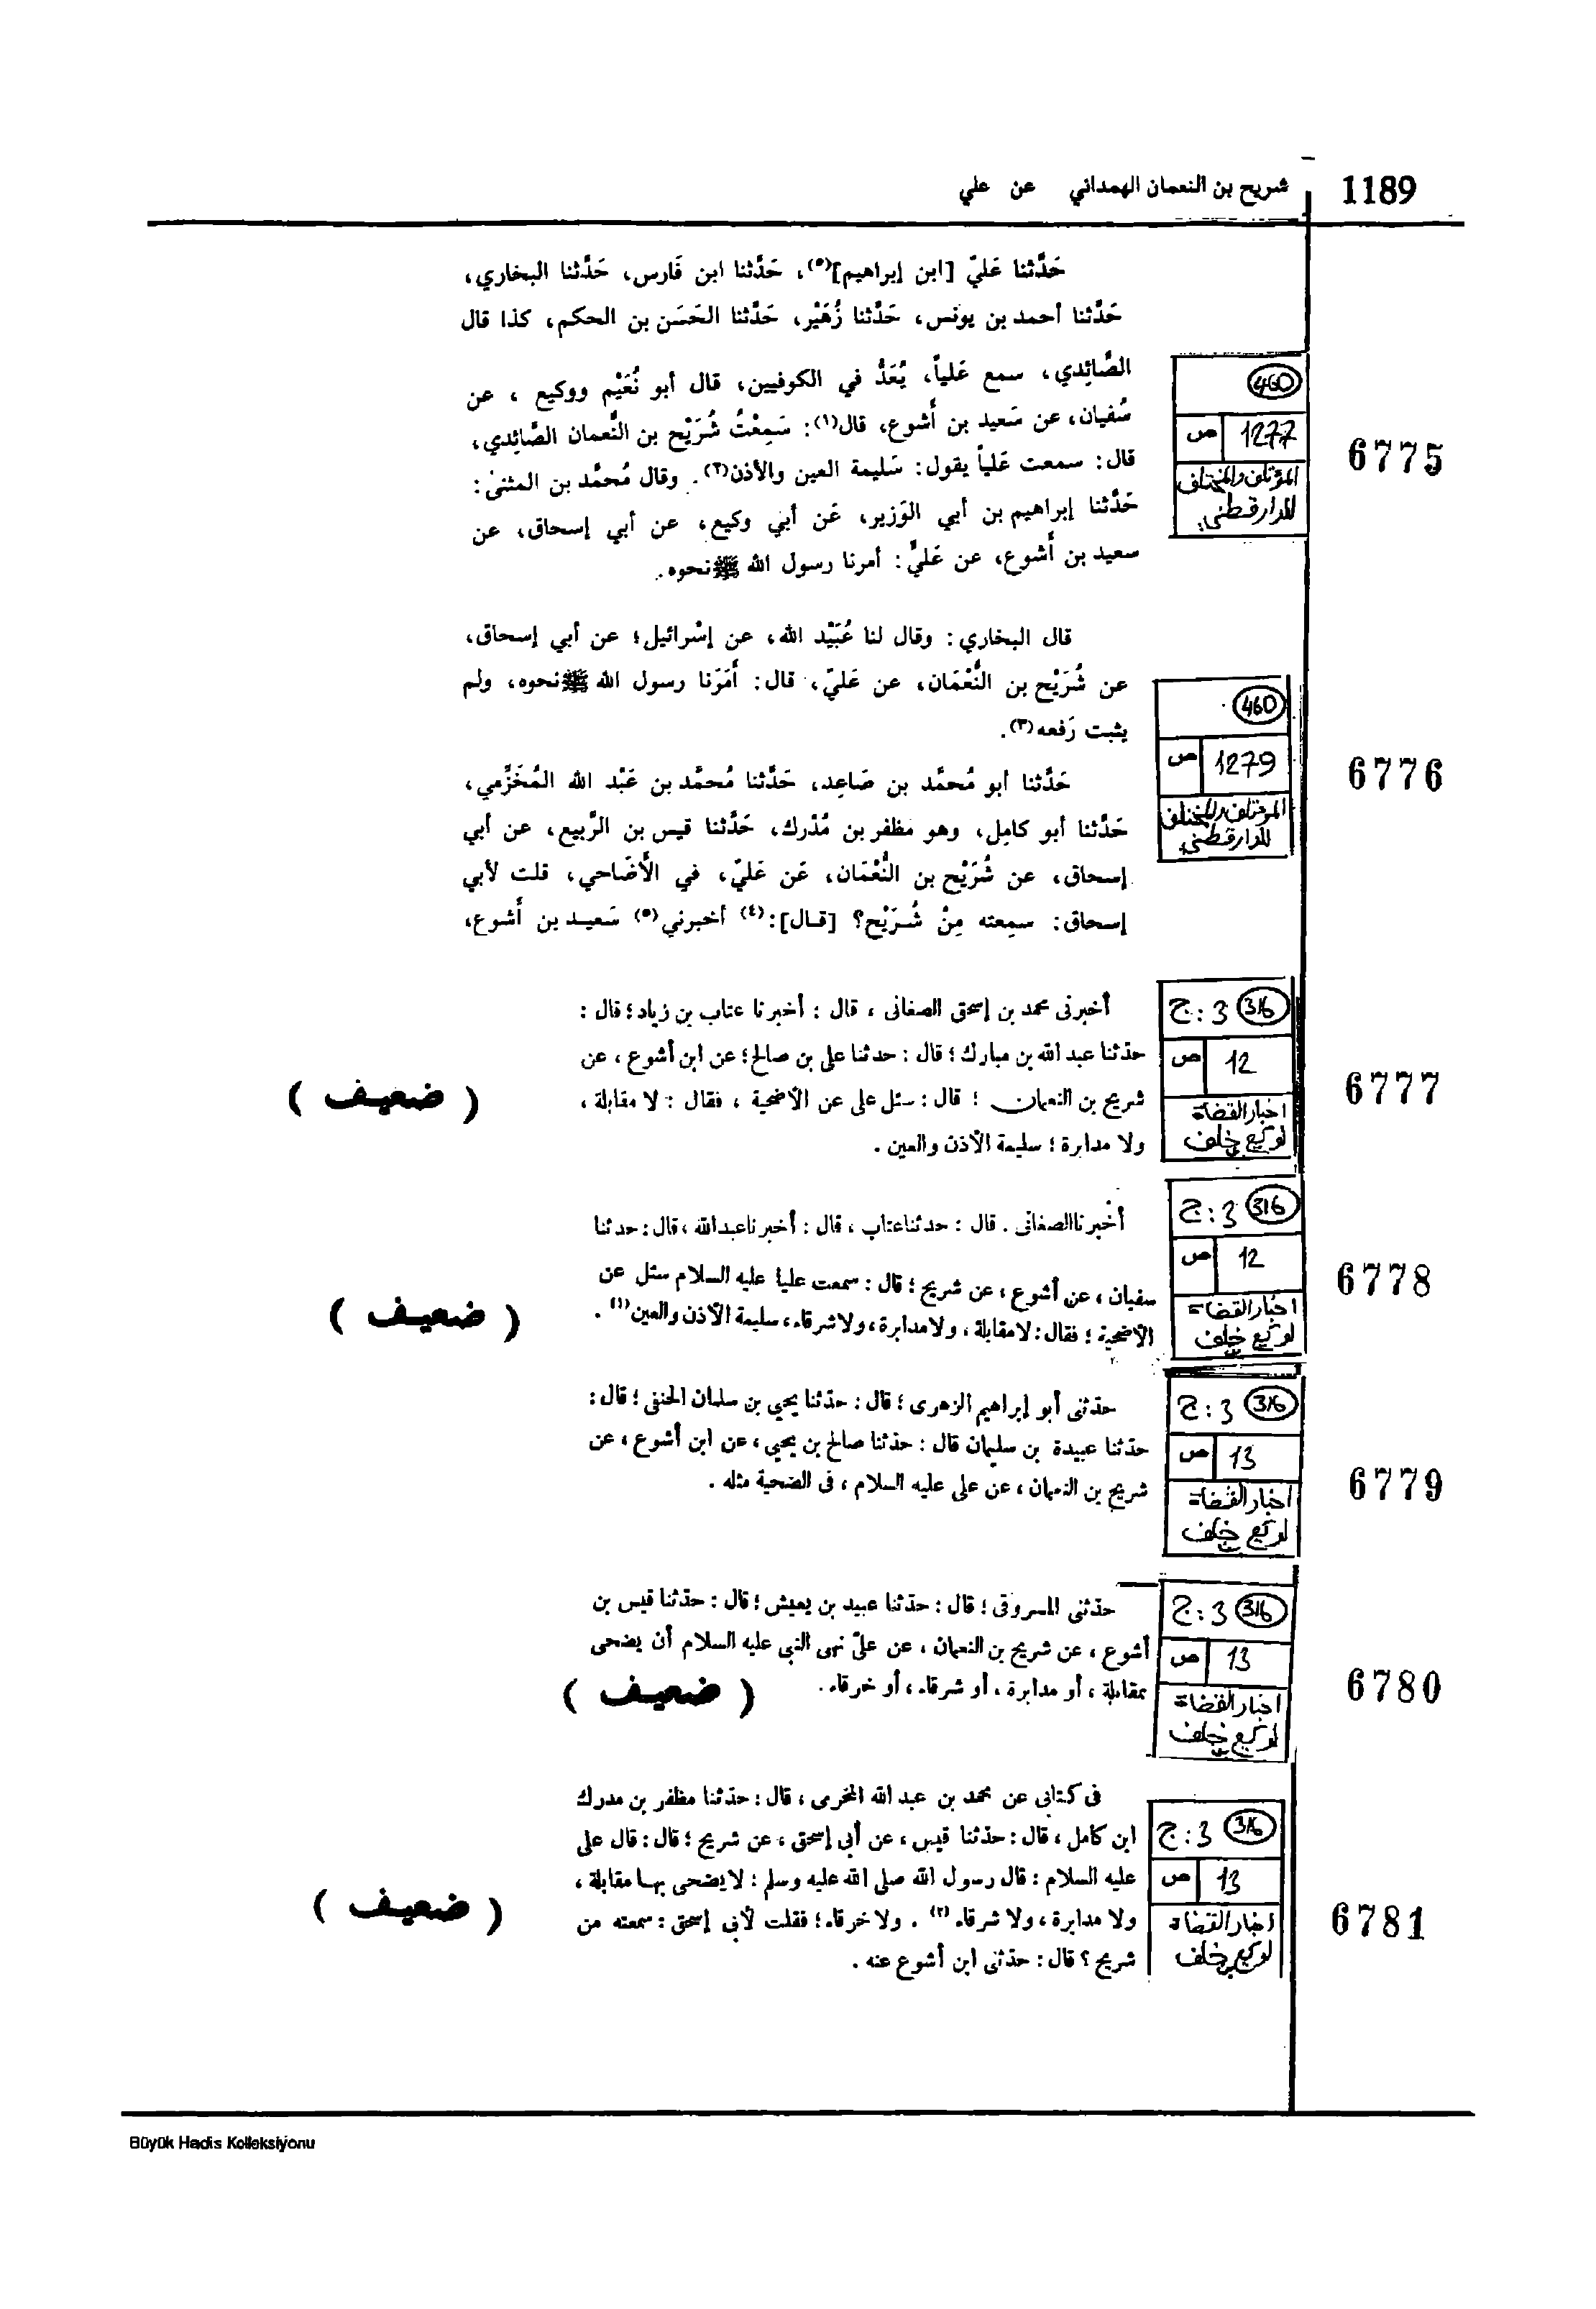 1189 شريح بن النعمان الهمداني عن علي
حَدَّثنا عَليّ [ابن إبراهيم](٥)، حَدَّثنا ابن فَارس، حَدَّثنا البخاري،
حَدَّثنا أحمد بن يونس، حَدَّثنا زُهَيْر، حَدَّثنا الحَسَن بن الحكم، كذا قال
الصَّائِدي، سمع عَلياً، يُعَدُّ في الكوفيين، قال أبو نُعَيْم ووكيع ، عن
سُفيان، عن سَعيد بن أَشوع، قال(١): سَمِعْتُ شُرَيْح بن النُّعمان الصَّائِدي،
قال: سمعت عَلياً يقول: سَليمة العين والأذن(٢). وقال مُحمَّد بن المثنىٰ:
حَدَّثنا إبراهيم بن أبي الوَزير، عَن أبي وكيع، عن أبي إسحاق، عن
سعيد بن أَشوع، عن عَليٍّ: أمرنا رسول الله ﷺ نحوه.
460
1277 ص
المؤتلف والمختلف
للدارقطني
6775
قال البخاري: وقال لنا عُبَيْد الله، عن إسْرائيل؛ عن أبي إسحاق،
عن شُرَيْح بن النُّعْمَان، عن عَليّ، قال: أَمَرَنا رسول الله ﷺ نحوه، ولم
يثبت رَفعه(٣).
حَدَّثنا أبو مُحمَّد بن صَاعِد، حَدَّثنا مُحمَّد بن عَبْد الله المُخَرِّمي،
حَدَّثنا أبو كامِل، وهو مظفر بن مُدْرك، حَدَّثنا قيس بن الرَّبيع، عن أبي
إسحاق، عن شُرَيْح بن النُّعْمَان، عَن عَليّ، في الأَضَاحي، قلت لأبي
إسحاق: سمِعته مِنْ شُرَيْح؟ [قال]:(٤) أخبرني(٥) سَعيد بن أَشوع،
460
1279 ص
المؤتلف والمختلف
للدارقطني
6776
أخبرنى محمد بن إسحق الصغانى ، قال : أخبرنا عتاب بن زياد ؛ قال :
حدثنا عبد الله بن مبارك ؛ قال : حدثنا على بن صالح؛ عن ابن أشوع ، عن
شريح بن النعمان ؛ قال : سئل على عن الأضحية ، فقال : لا مقابلة ،
ولا مدابرة ؛ سليمة الأذن والعين .
( ضعيف )
316 ج : 3
12 ص
اخبار القضاة
لوكيع بن خلف
6777
أخبرنا الصغانى . قال : حدثنا عتاب ، قال : أخبرنا عبد الله ، قال : حدثنا
سفيان ، عن أشوع ، عن شريح ؛ قال : سمعت عليا عليه السلام سئل عن
الأضحية ؛ فقال : لا مقابلة ، ولا مدابرة ، ولا شرقاء ، سليمة الأذن والعين(١) .
( ضعيف )
316 ج : 3
12 ص
اخبار القضاة
لوكيع بن خلف
6778
حدثنى أبو إبراهيم الزهرى ؛ قال : حدثنا يحيى بن سلمان الحنفى ؛ قال :
حدثنا عبيدة بن سليمان قال : حدثنا صالح بن يحيى ، عن ابن أشوع ، عن
شريح بن النعمان ، عن على عليه السلام ، فى الضحية مثله .
316 ج : 3
13 ص
اخبار القضاة
لوكيع بن خلف
6779
حدثنى المسروقى ؛ قال : حدثنا عبيد بن يعيش ؛ قال : حدثنا قيس بن
أشوع ، عن شريح بن النعمان ، عن علىّ نهى النبى عليه السلام أن يضحى
بمقابلة ، أو مدابرة ، أو شرقاء ، أو خرقاء .
( ضعيف )
316 ج : 3
13 ص
اخبار القضاة
لوكيع بن خلف
6780
فى كتابى عن محمد بن عبد الله المخرمى ، قال : حدثنا مظفر بن مدرك
ابن كامل ، قال : حدثنا قيس ، عن أبى إسحق ، عن شريح ؛ قال : قال على
عليه السلام : قال رسول الله صلى الله عليه وسلم : لا يضحى بها مقابلة ،
ولا مدابرة ، ولا شرقاء (٢) . ولا خرقاء ؛ فقلت لأبى إسحق : سمعته من
شريح ؟ قال : حدثنى ابن أشوع عنه .
( ضعيف )
316 ج : 3
13 ص
اخبار القضاة
لوكيع بن خلف
6781
Büyük Hadis Kolleksiyonu